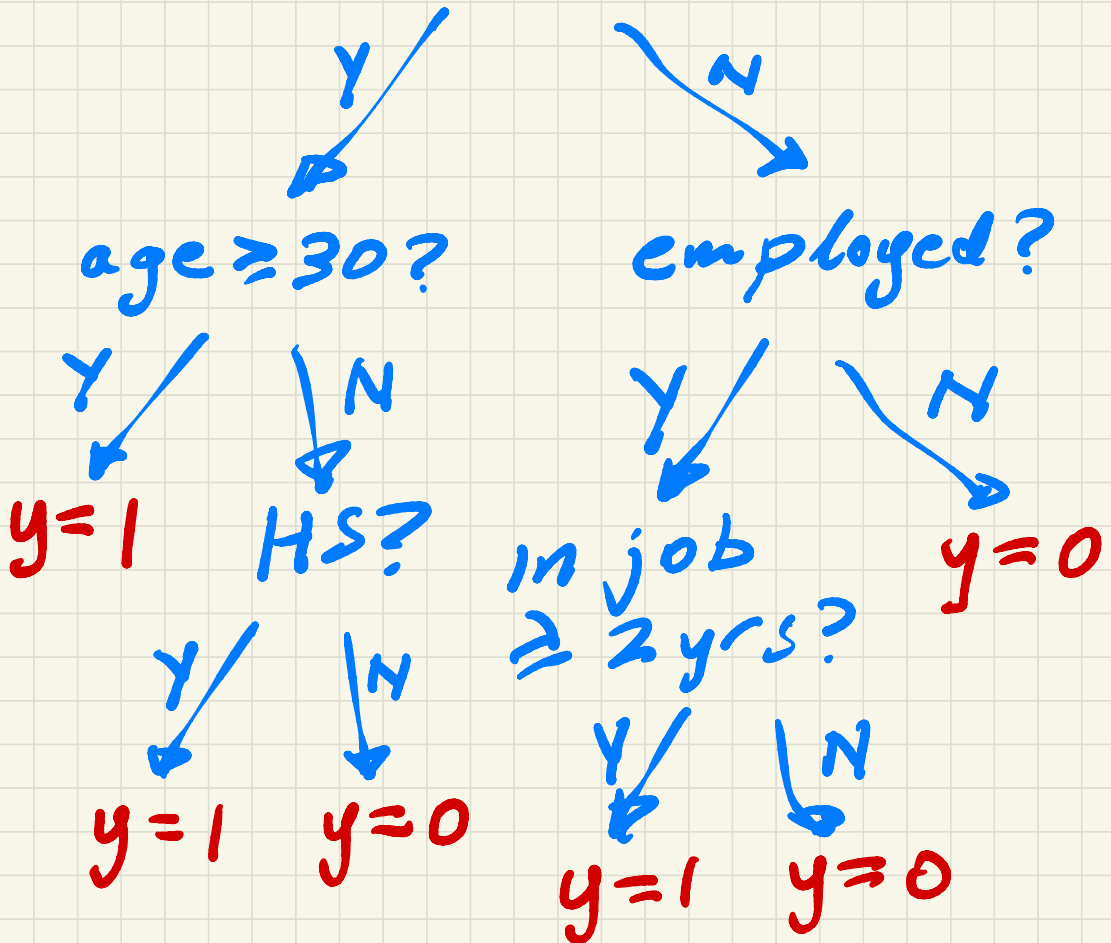 Y N
age ≥ 30? employed?
Y N Y N
y = 1 HS? in job y = 0
≥ 2 yrs?
Y N Y N
y = 1 y = 0 y = 1 y = 0